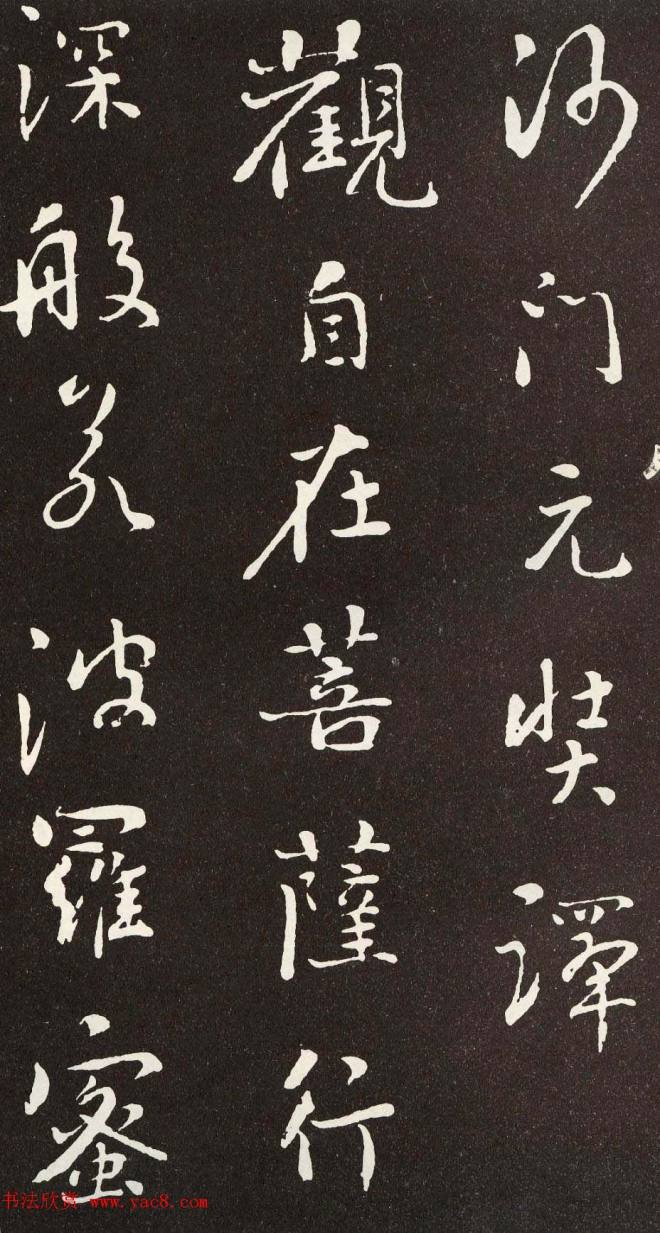 沙門元奘譯
觀自在菩薩行
深般若波羅蜜
书法欣赏 www.yac8.com